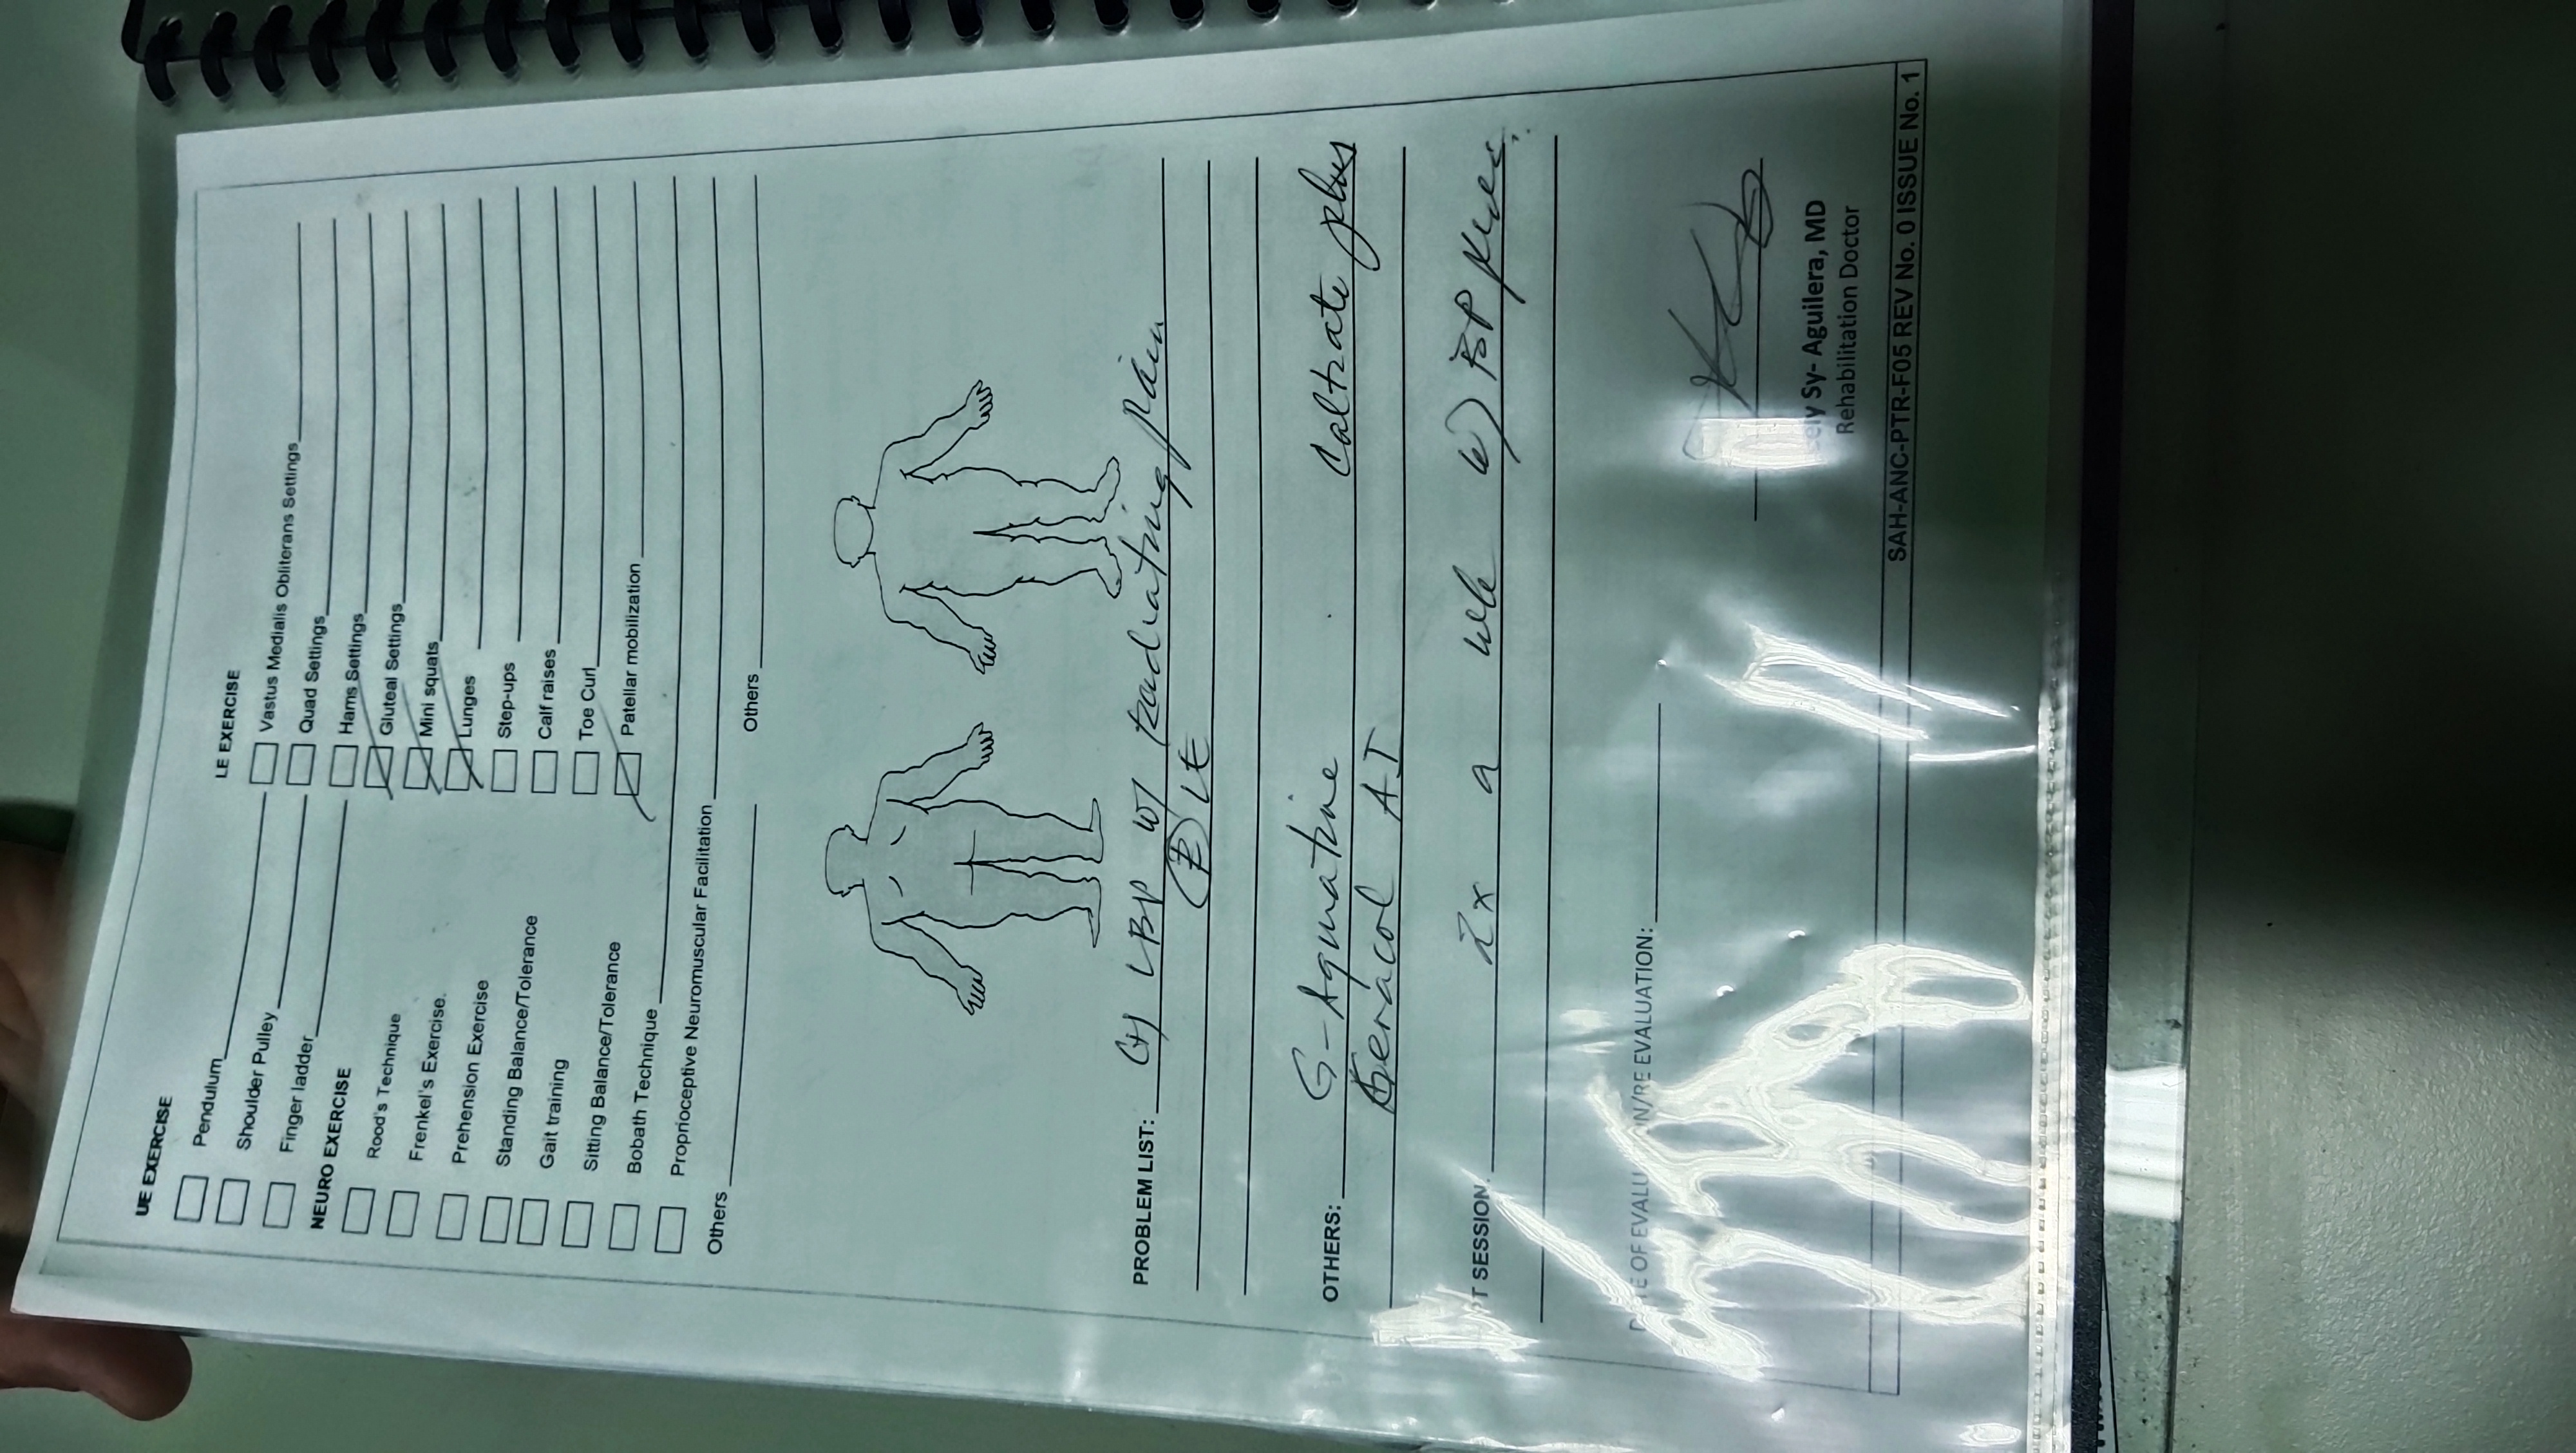 UE EXERCISE
Pendulum
Shoulder Pulley
Finger ladder
NEURO EXERCISE
Rood's Technique
Frenkel's Exercise.
Prehension Exercise
Standing Balance/Tolerance
Gait training
Sitting Balance/Tolerance
Bobath Technique
Proprioceptive Neuromuscular Facilitation
Others
LE EXERCISE
Vastus Medialis Obliterans Settings
Quad Settings
Hams Settings
Gluteal Settings
Mini squats
Lunges
Step-ups
Calf raises
Toe Curl
Patellar mobilization
Others
PROBLEM LIST: (+) LBP w/ radiating pain
LE
OTHERS: G-Agmatine Caltrate plus
Genacol AI
PT SESSION. 2x a wk w/ BP prec.
DATE OF EVALUATION/RE EVALUATION:
Sy- Aguilera, MD
Rehabilitation Doctor
SAH-ANC-PTR-F05 REV No. 0 ISSUE No. 1